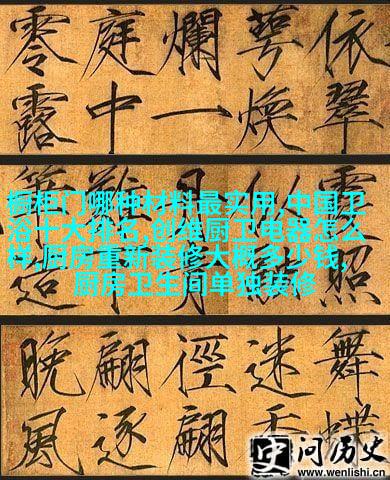 依翠
萼煥
爛一
庭中
零露
橱柜门哪种材料最实用,中国卫
浴十大排名,创维厨卫电器怎么
样,厨房重新装修大概多少钱,
厨房卫生间单独装修
舞蝶
迷香
徑翩
翩逐
晚風
问历史
www.wenlishi.cn